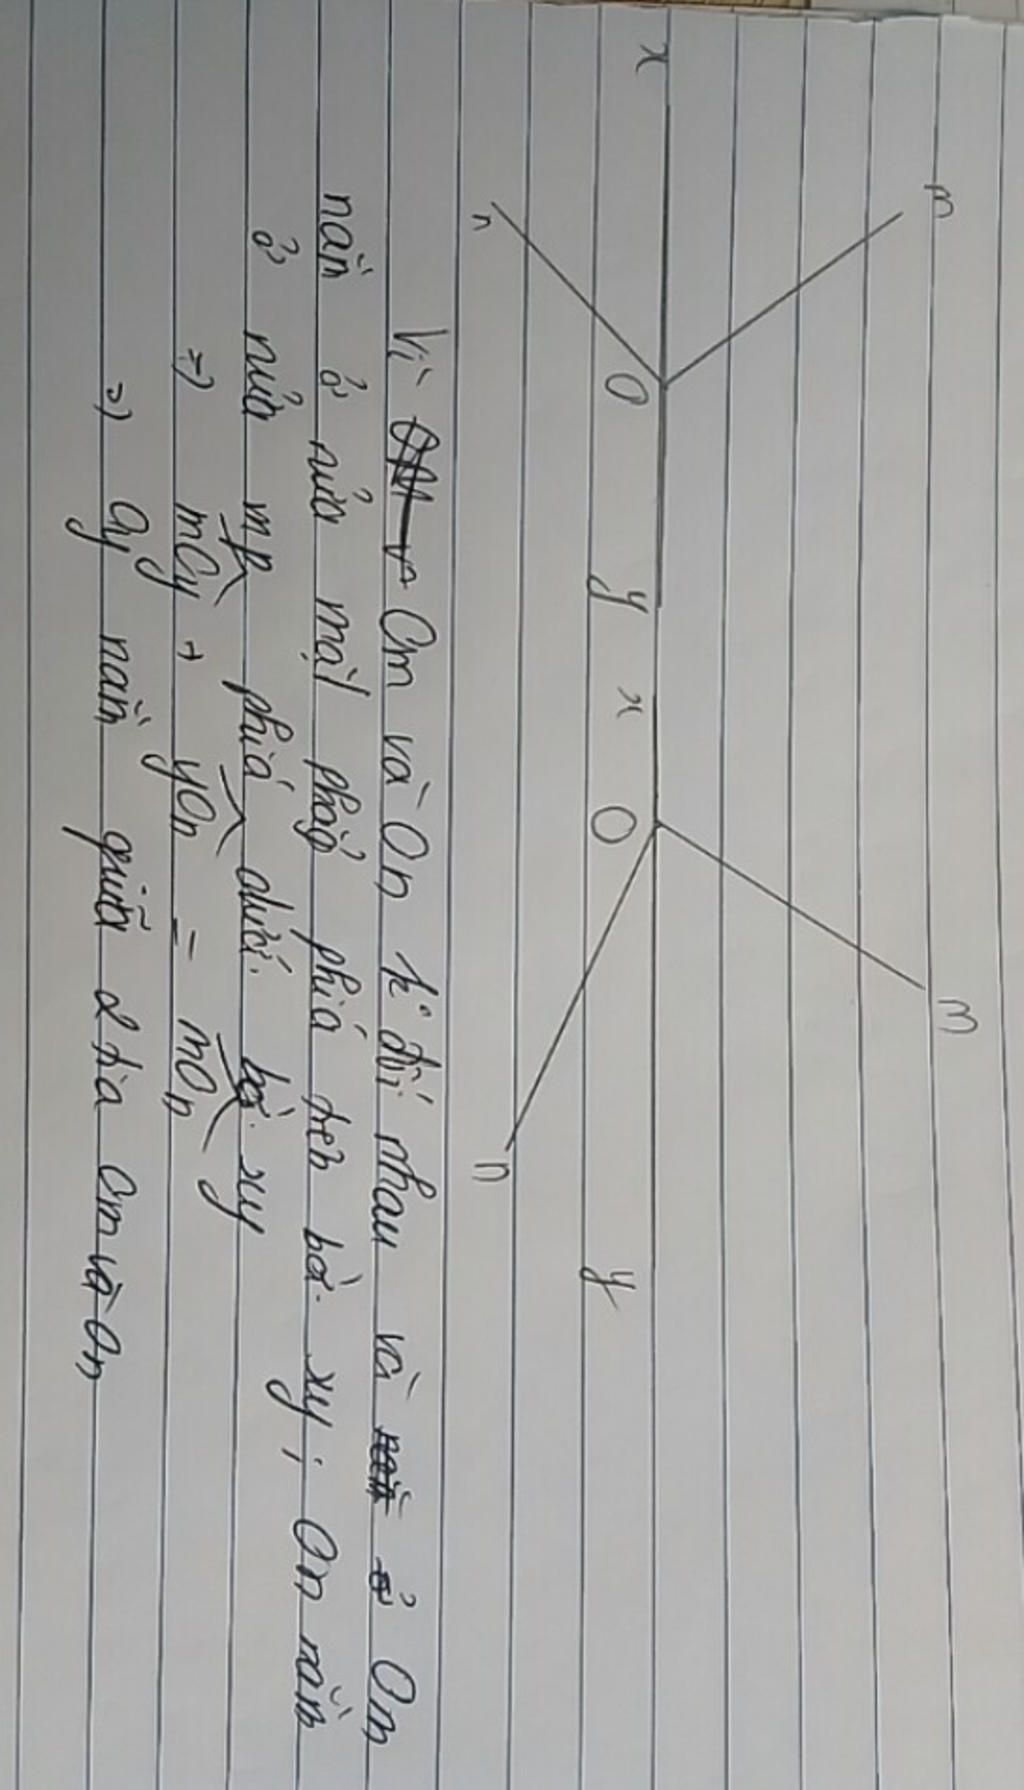 m
m
x O y x O y
n n
Vì Om và On k° đối nhau và Om
nằm ở nửa mặt phẳng phía trên bờ xy ; On nằm
ở nửa mp phía dưới bờ xy
=> mOy + yOn = mOn
=> Oy nằm giữa 2 tia Om và On